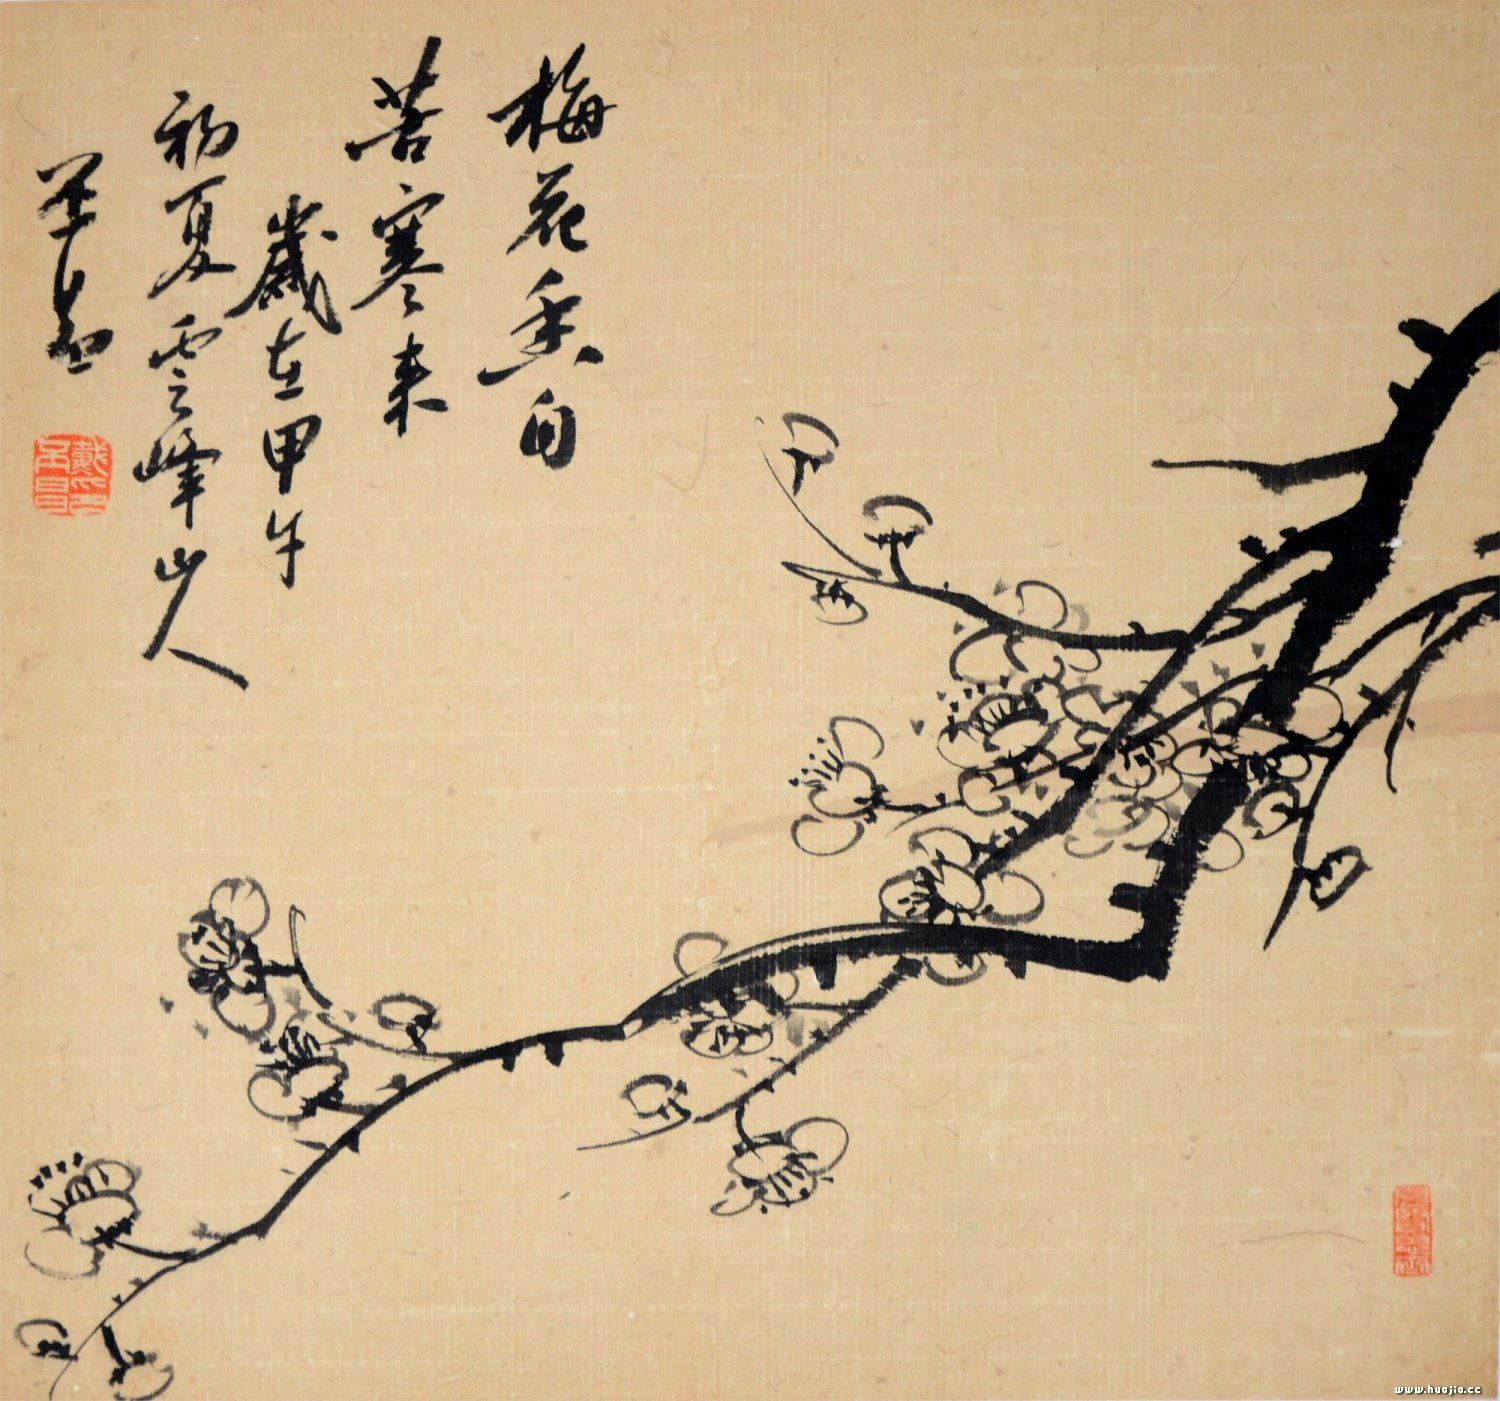 梅花香自
苦寒来
歲在甲午
初夏雲峰山人
筆意
www.huajia.cc